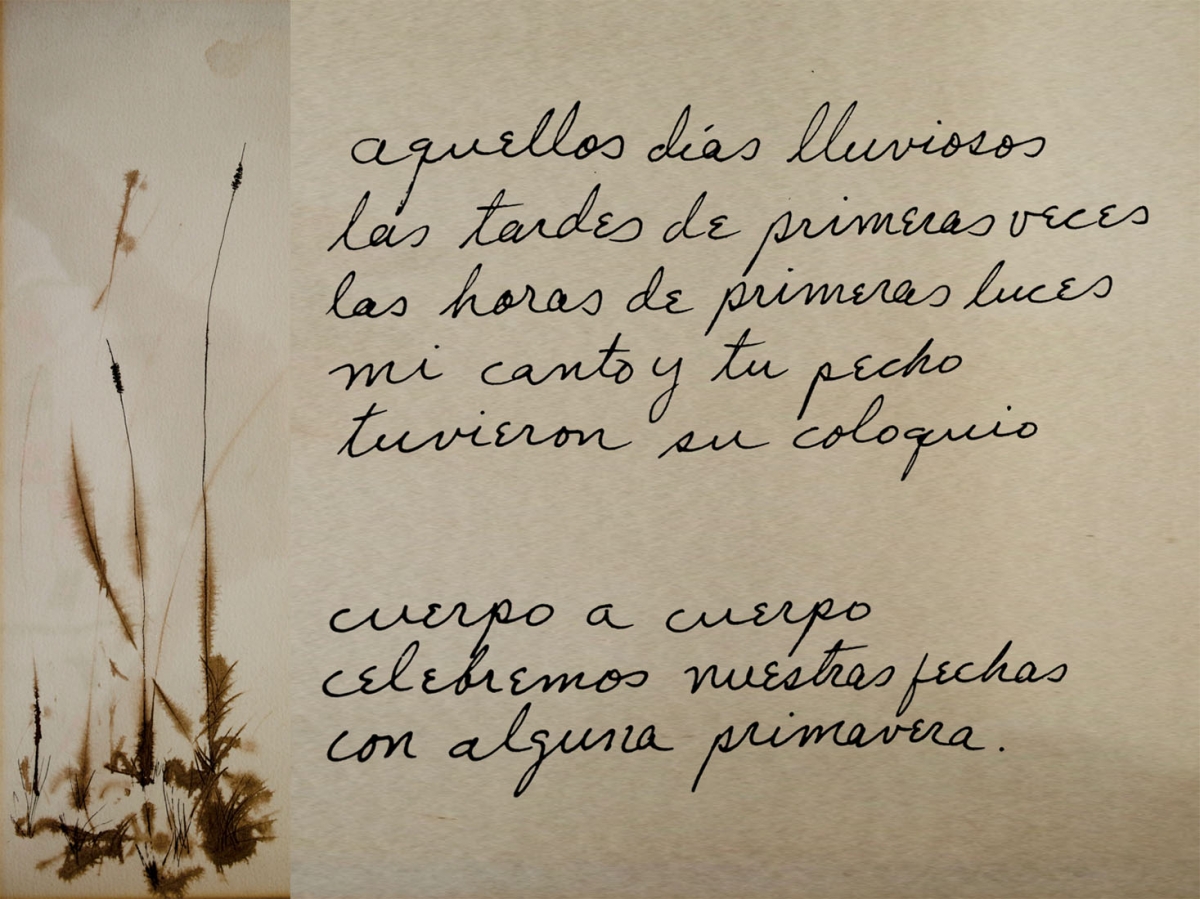 aquellos días lluviosos
las tardes de primeras veces
las horas de primeras luces
mi canto y tu pecho
tuvieron su coloquio
cuerpo a cuerpo
celebremos nuestras fechas
con alguna primavera.